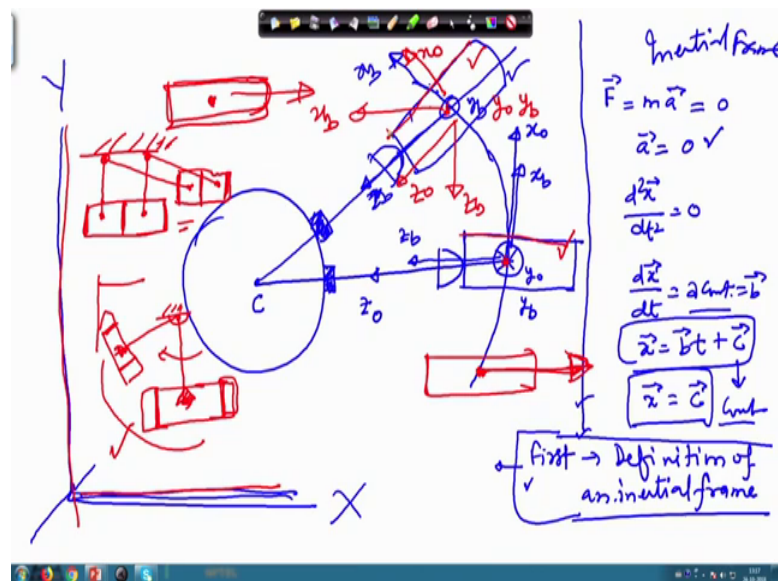 Y
x_o
x_b
x_b
y_b y_o y_b
x_o
z_b
z_o
z_b
x_b
z_b
C
z_o
y_o
y_b
X
Inertial frame
F⃗ = m a⃗ = 0
a⃗ = 0 ✓
d²x⃗/dt² = 0
dx⃗/dt = a Cont. = b⃗
x⃗ = b⃗t + C⃗
x⃗ = C⃗ Cont
First → Definition of
an inertial frame